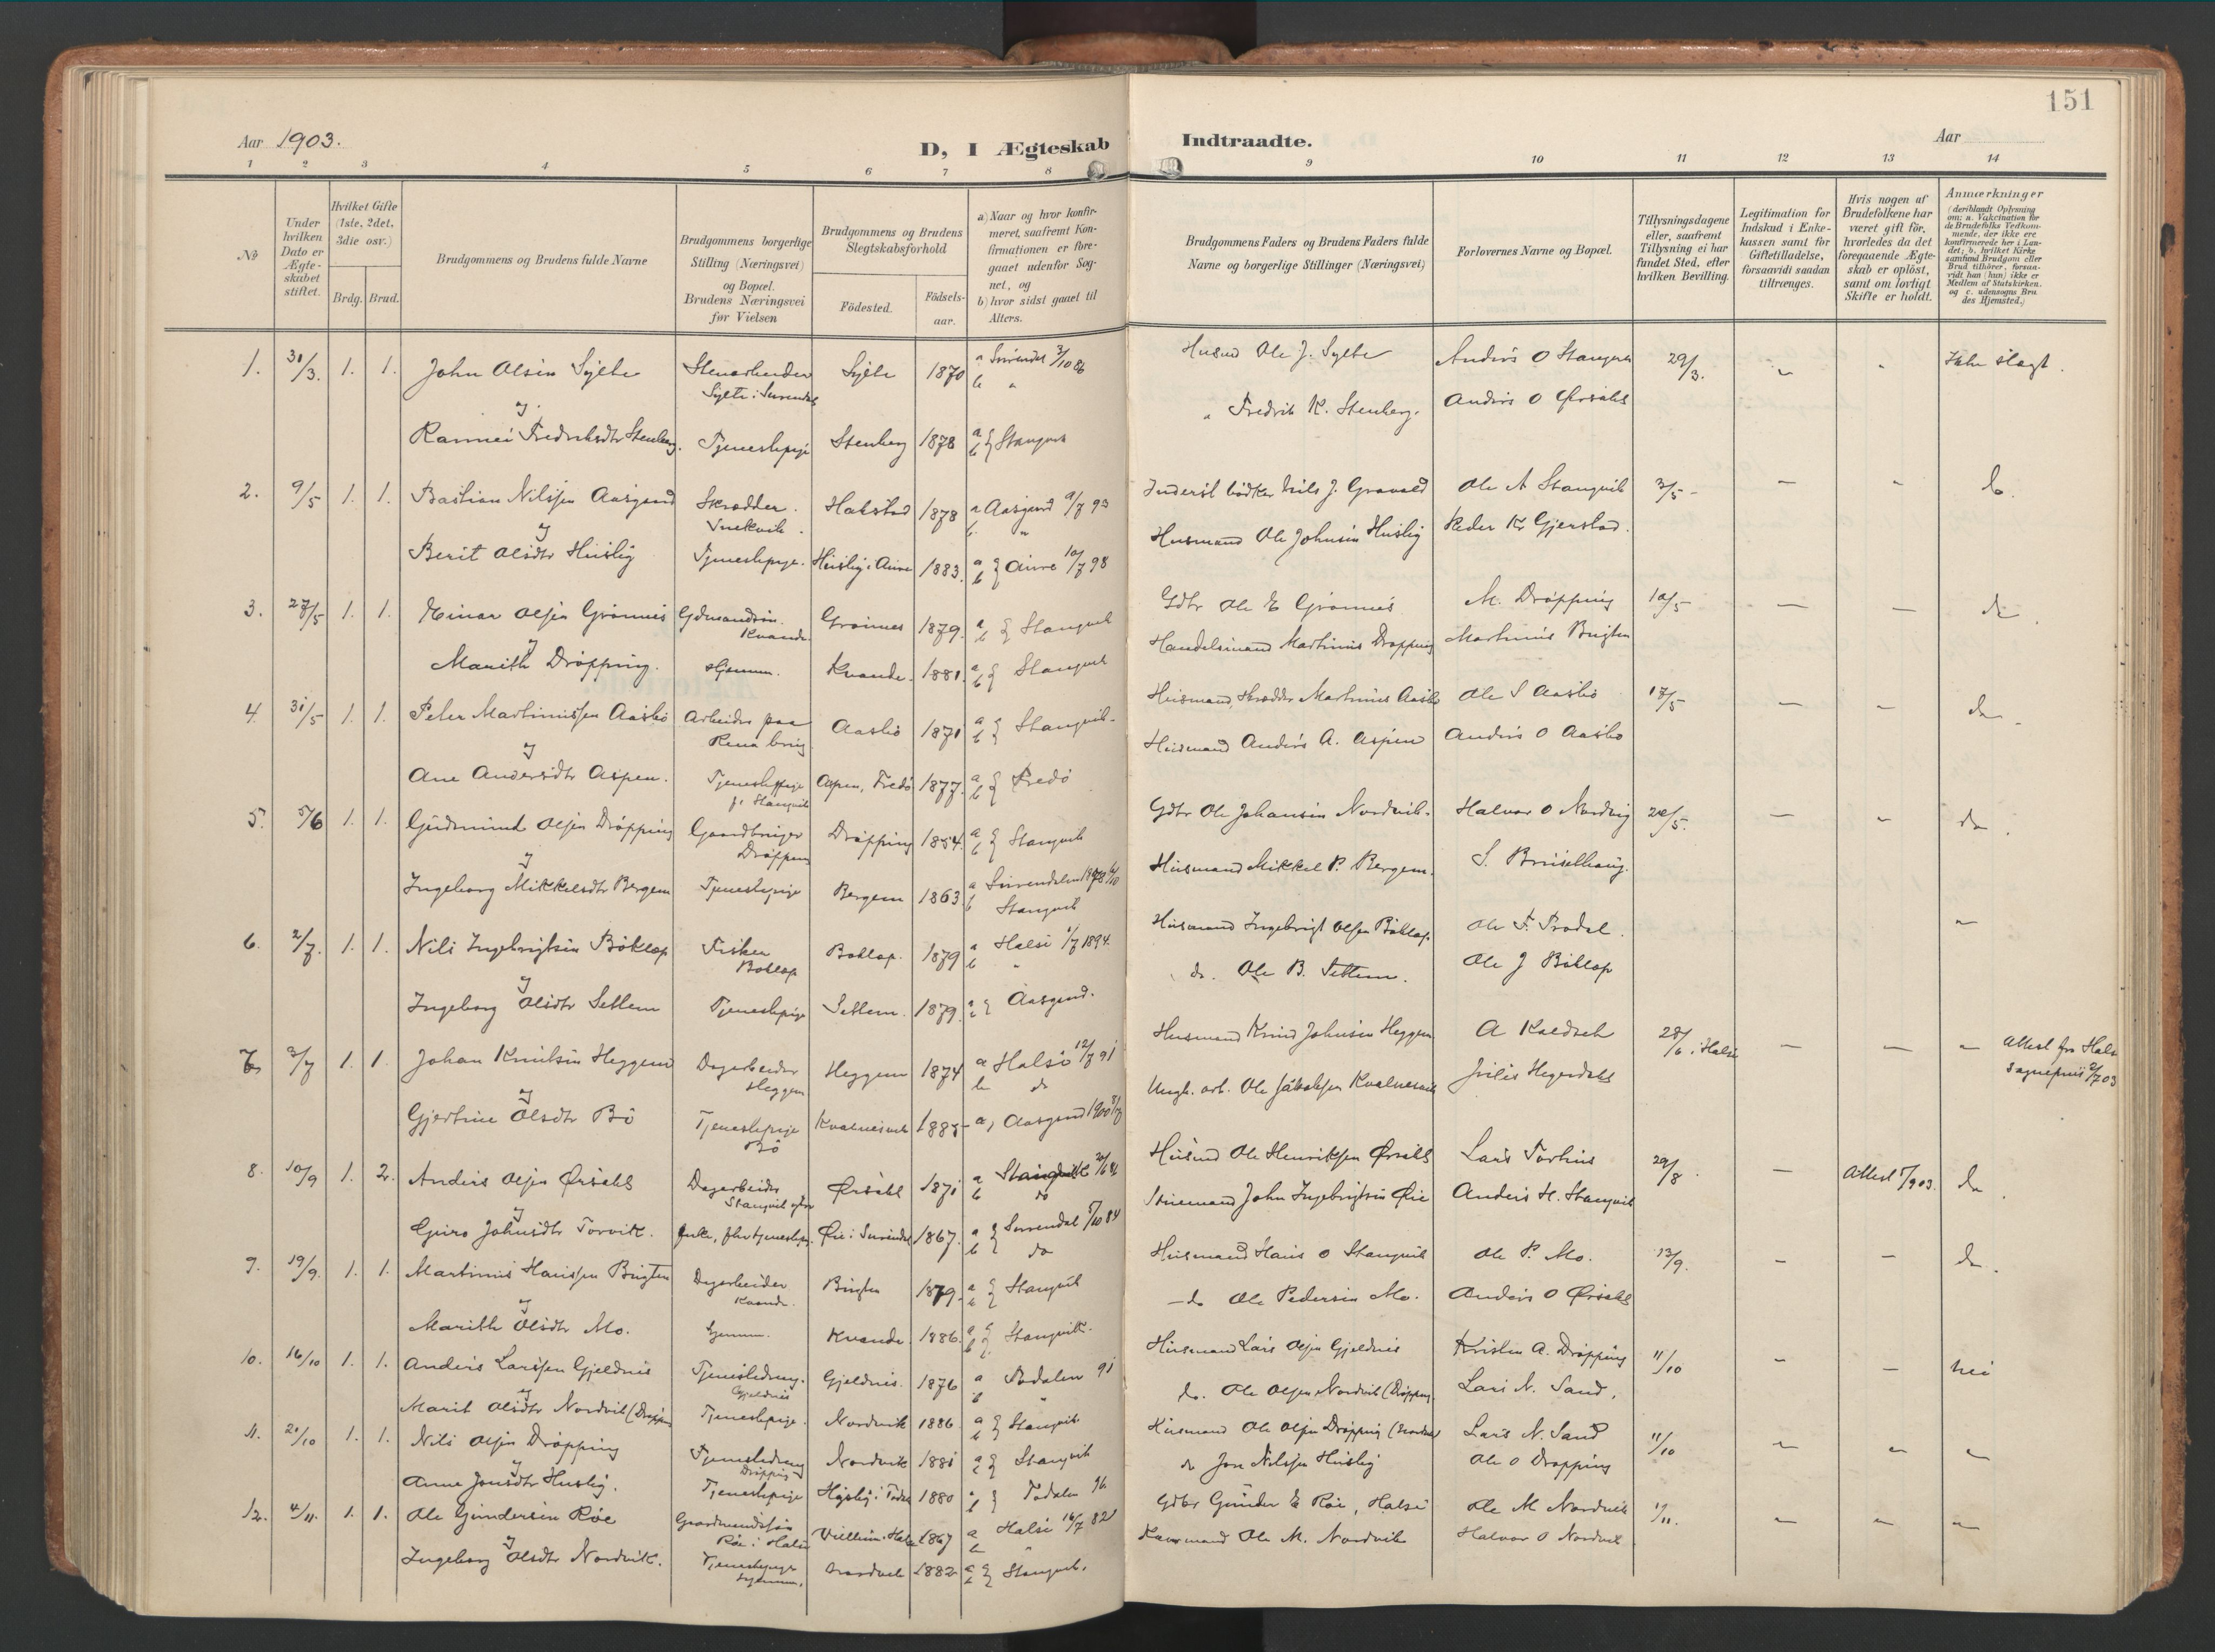 151
Aar 1903.
D, I Ægteskab Indtraadte.
Aar
1 2 3 4 5 6 7 8 9 10 11 12 13 14
No
Under hvilken Dato er Ægteskabet stiftet.
Hvilket Gifte (1ste, 2det, 3die osv.)
Brdg. Brud.
Brudgommens og Brudens fulde Navne
Brudgommens borgerlige Stilling (Næringsvei) og Bopæl. Brudens Næringsvei før Vielsen
Brudgommens og Brudens Slegtskabsforhold
Födested.
Födselsaar.
a) Naar og hvor konfirmeret, saafremt Konfirmationen er foregaaet udenfor Sognet, og
b) hvor sidst gaaet til Alters.
Brudgommens Faders og Brudens Faders fulde Navne og borgerlige Stillinger (Næringsvei)
Forlovernes Navne og Bopæl.
Tillysningsdagene eller, saafremt Tillysning ei har fundet Sted, efter hvilken Bevilling.
Legitimation for Indskud i Enkekassen samt for Giftetilladelse, forsaavidt saadan tiltrænges.
Hvis nogen af Brudefolkene har været gift för, hvorledes da det foregaaende Ægteskab er oplöst, samt om lovligt Skifte er holdt.
Anmærkninger
(deriblandt Oplysning om: a. Vakcination for de Brudefolks Vedkommende, der ikke ere konfirmerede her i Landet; b. hvilket Kirkesamfund Brudgom eller Brud tilhörer, forsaavidt han (hun) ikke er Medlem af Statskirken. og c. udensogns Brudes Hjemsted.)
1. 31/3. 1. 1. John Olsen Sylte Stenarbeider Sylte 1870 a Surendal 3/10 86 Husmd Ole J. Sylte Anders O Stangvik 29/3. Ikke slægt.
Sylte i Surendal b "
og " Fredrik K. Stenberg. Anders O Ørsahl
Rannei Fredriksdtr Stenberg. Tjenestepige Stenberg 1878 a b } Stangvik
2. 9/5 1. 1. Bastian Nilssen Aasgaard Skrædder. Halstad 1878 a Aasgaard 9/7 93 Ole A Stangvik 3/5 - " do.
b "
og Husmand Ole Johnsen Huslig Peder Kr Gjerstad.
Berit Olsdtr Huslig Tjenestepige. Huslig i Aure 1883. a b } Aure 10/7 98
3. 27/5 1. 1. Einar Olsen Grønnes Gdmandssøn. Grønnes 1879. a b } Stangvik Gdbr Ole E Grønnes M. Drøpping 10/5 - - do.
Kvande.
og Handelsmand Martinus Drøpping Martinus Brigten
Marith Drøpping. Hjemme. Kvande. 1881. a b } Stangvik
4. 31/5 1. 1. Peter Martinussen Aasbø Arbeider paa Aasbø 1871 a b } Stangvik. Husmand, Skrædder Martinus Aasbø Ole S Aasbø 17/5 - - do.
Rena brug.
og Husmand Anders A. Aspen Anders O Aasbø
Ane Andersdtr Aspen. Tjenestepige Aspen, Fredø 1877. a b } Fredø
p. Stangvik
5. 5/6 1. 1. Gudmund Olsen Drøpping Gaardbruger Drøpping 1854. a b } Stangvik Gdbr Ole Johansen Nordvik. Halvor O Nordvig 20/5. - " do.
Drøpping
og Husmand Mikkel P. Bergem. S. Brusethaug.
Ingeborg Mikkelsdtr Bergem Tjenestepige Bergem 1863. a Surendalen
b Stangvik
6. 2/7. 1. 1. Nils Ingebrigtsen Bøklap Fisker Bøklap. 1879 a Halse 1/7 1894. Husmand Ingebrigt Olsen Bøklap. Ole F. Prodal. "
Bøklap b "
og do. Ole B. Settem. Ole J Bøklap
Ingeborg Olsdtr Settem Tjenestepige Settem. 1879. Aasgaard.
7. 3/7 1. 1. Johan Knutsen Heggem Dagarbeider Heggem 1874 a Halse 12/7 91 Husmand Knud Johnsen Heggem A Kaldset 28/6 i Halse - - " Attest fra Halse
Heggem b do Sognepræst 2/7 03
og Ole Jakobsen Kvalnesvik Julis Hegerdahl
Gjertine Olsdtr Bø Tjenestepige Kvalnesvik 1885 a, Aasgaard 1900
Bø
8. 10/9 1. 2. Anders Olsen Ørsahl Dagarbeider Ørsahl 1871 a Stangvik Husmd Ole Henriksen Ørsahl Lars Torhus 29/8. - Attest 5/9 03. do.
b do
og John Ingebrigtsen Øie Anders H. Stangvik
Guro Johnsdtr Torvik. Enke, Øie i Surendal 1867. a b } Surendal 5/10 84
do
9. 19/9. 1. 1. Martinus Hanssen Brigten Dagarbeider Brigten 1879. a b } Stangvik Husmand Hans O Stangvik Ole P. Mo. 13/9. - - do.
Kvande.
og - do Ole Pedersen Mo. Anders O Ørsahl
Marith Olsdtr Mo. Hjemme. Kvande. 1886. a b } Stangvik.
10. 16/10 1. 1. Anders Larssen Gjeldnes Tjenestedreng. Gjeldnes. 1876 a Todalen 91 Husmand Lars Olsen Gjeldnes Kristen A. Drøpping 11/10 - - nei
Gjeldnes b "
og do. Ole Olsen Nordvik (Drøpping Lars N. Sand.
Marit Olsdtr Nordvik (Drøpping Tjenestepige. Nordvik 1886 a b } Stangvik
11. 20/10 1. 1. Nils Olsen Drøpping Tjenestedreng Nordvik 1881 a b } Stangvik Husmand Ole Olsen Drøpping (Nordvik) Lars N. Sand 11/10 - " "
Drøpping
og do Jon Nilssen Huslig Ole O Drøpping
Anne Jonsdtr Huslig. Tjenestepige 1880 Todalen 96.
12. 4/11. 1. 1. Ole Gundersen Røe Gaardmandssøn 1867 a Halse 16/7 82 Gdbr Gunder E Røe, Halse Ole M Nordvik 1/11. - " "
Røe i Halse b "
og Ole M. Nordvik Halvor O Nordvik
Ingeborg Olsdtr Nordvik. Tjenestepige Nordvik 1882 a b } Stangvik.
hjemme.